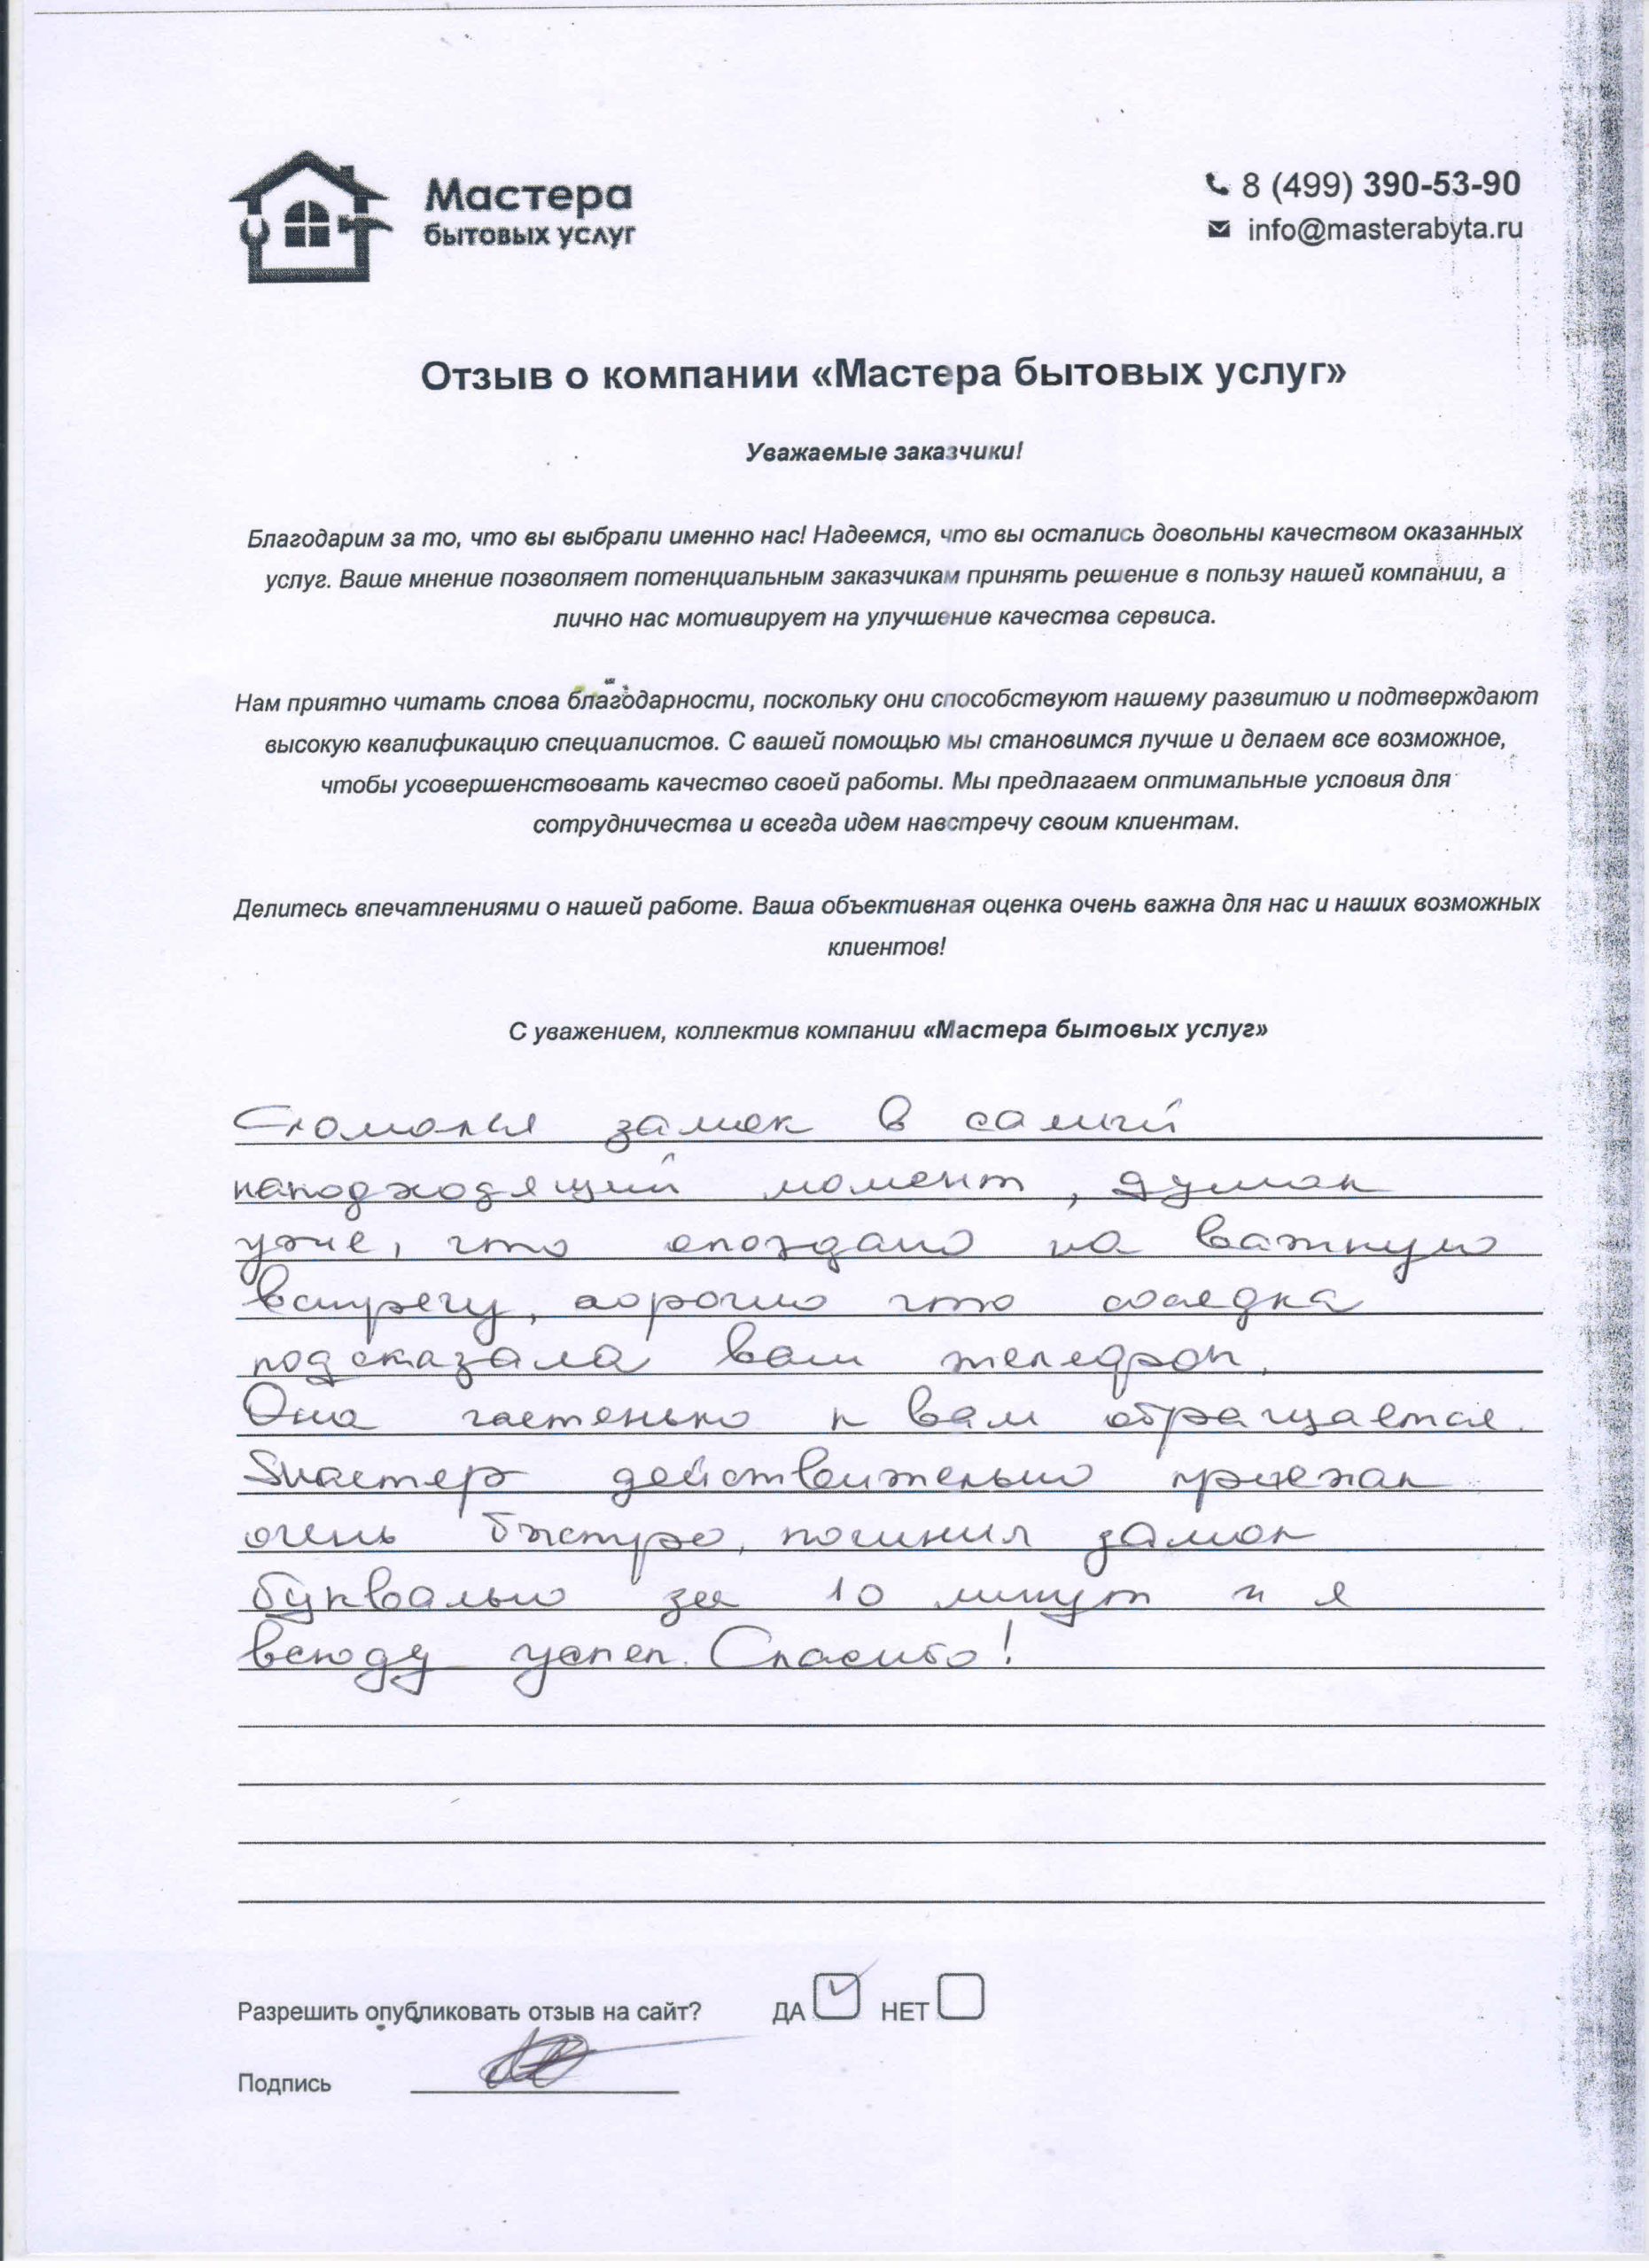 Мастера
бытовых услуг
8 (499) 390-53-90
info@masterabyta.ru
Отзыв о компании «Мастера бытовых услуг»
Уважаемые заказчики!
Благодарим за то, что вы выбрали именно нас! Надеемся, что вы остались довольны качеством оказанных
услуг. Ваше мнение позволяет потенциальным заказчикам принять решение в пользу нашей компании, а
лично нас мотивирует на улучшение качества сервиса.
Нам приятно читать слова благодарности, поскольку они способствуют нашему развитию и подтверждают
высокую квалификацию специалистов. С вашей помощью мы становимся лучше и делаем все возможное,
чтобы усовершенствовать качество своей работы. Мы предлагаем оптимальные условия для
сотрудничества и всегда идем навстречу своим клиентам.
Делитесь впечатлениями о нашей работе. Ваша объективная оценка очень важна для нас и наших возможных
клиентов!
С уважением, коллектив компании «Мастера бытовых услуг»
Сломался замок в самый
неподходящий момент, думал
уже, что опоздаю на важную
встречу, хорошо что соседка
подсказала ваш телефон.
Она частенько к вам обращается.
Мастер действительно приехал
очень быстро, починил замок
буквально за 10 минут и я
всюду успел. Спасибо!
Разрешить опубликовать отзыв на сайт? ДА НЕТ
Подпись